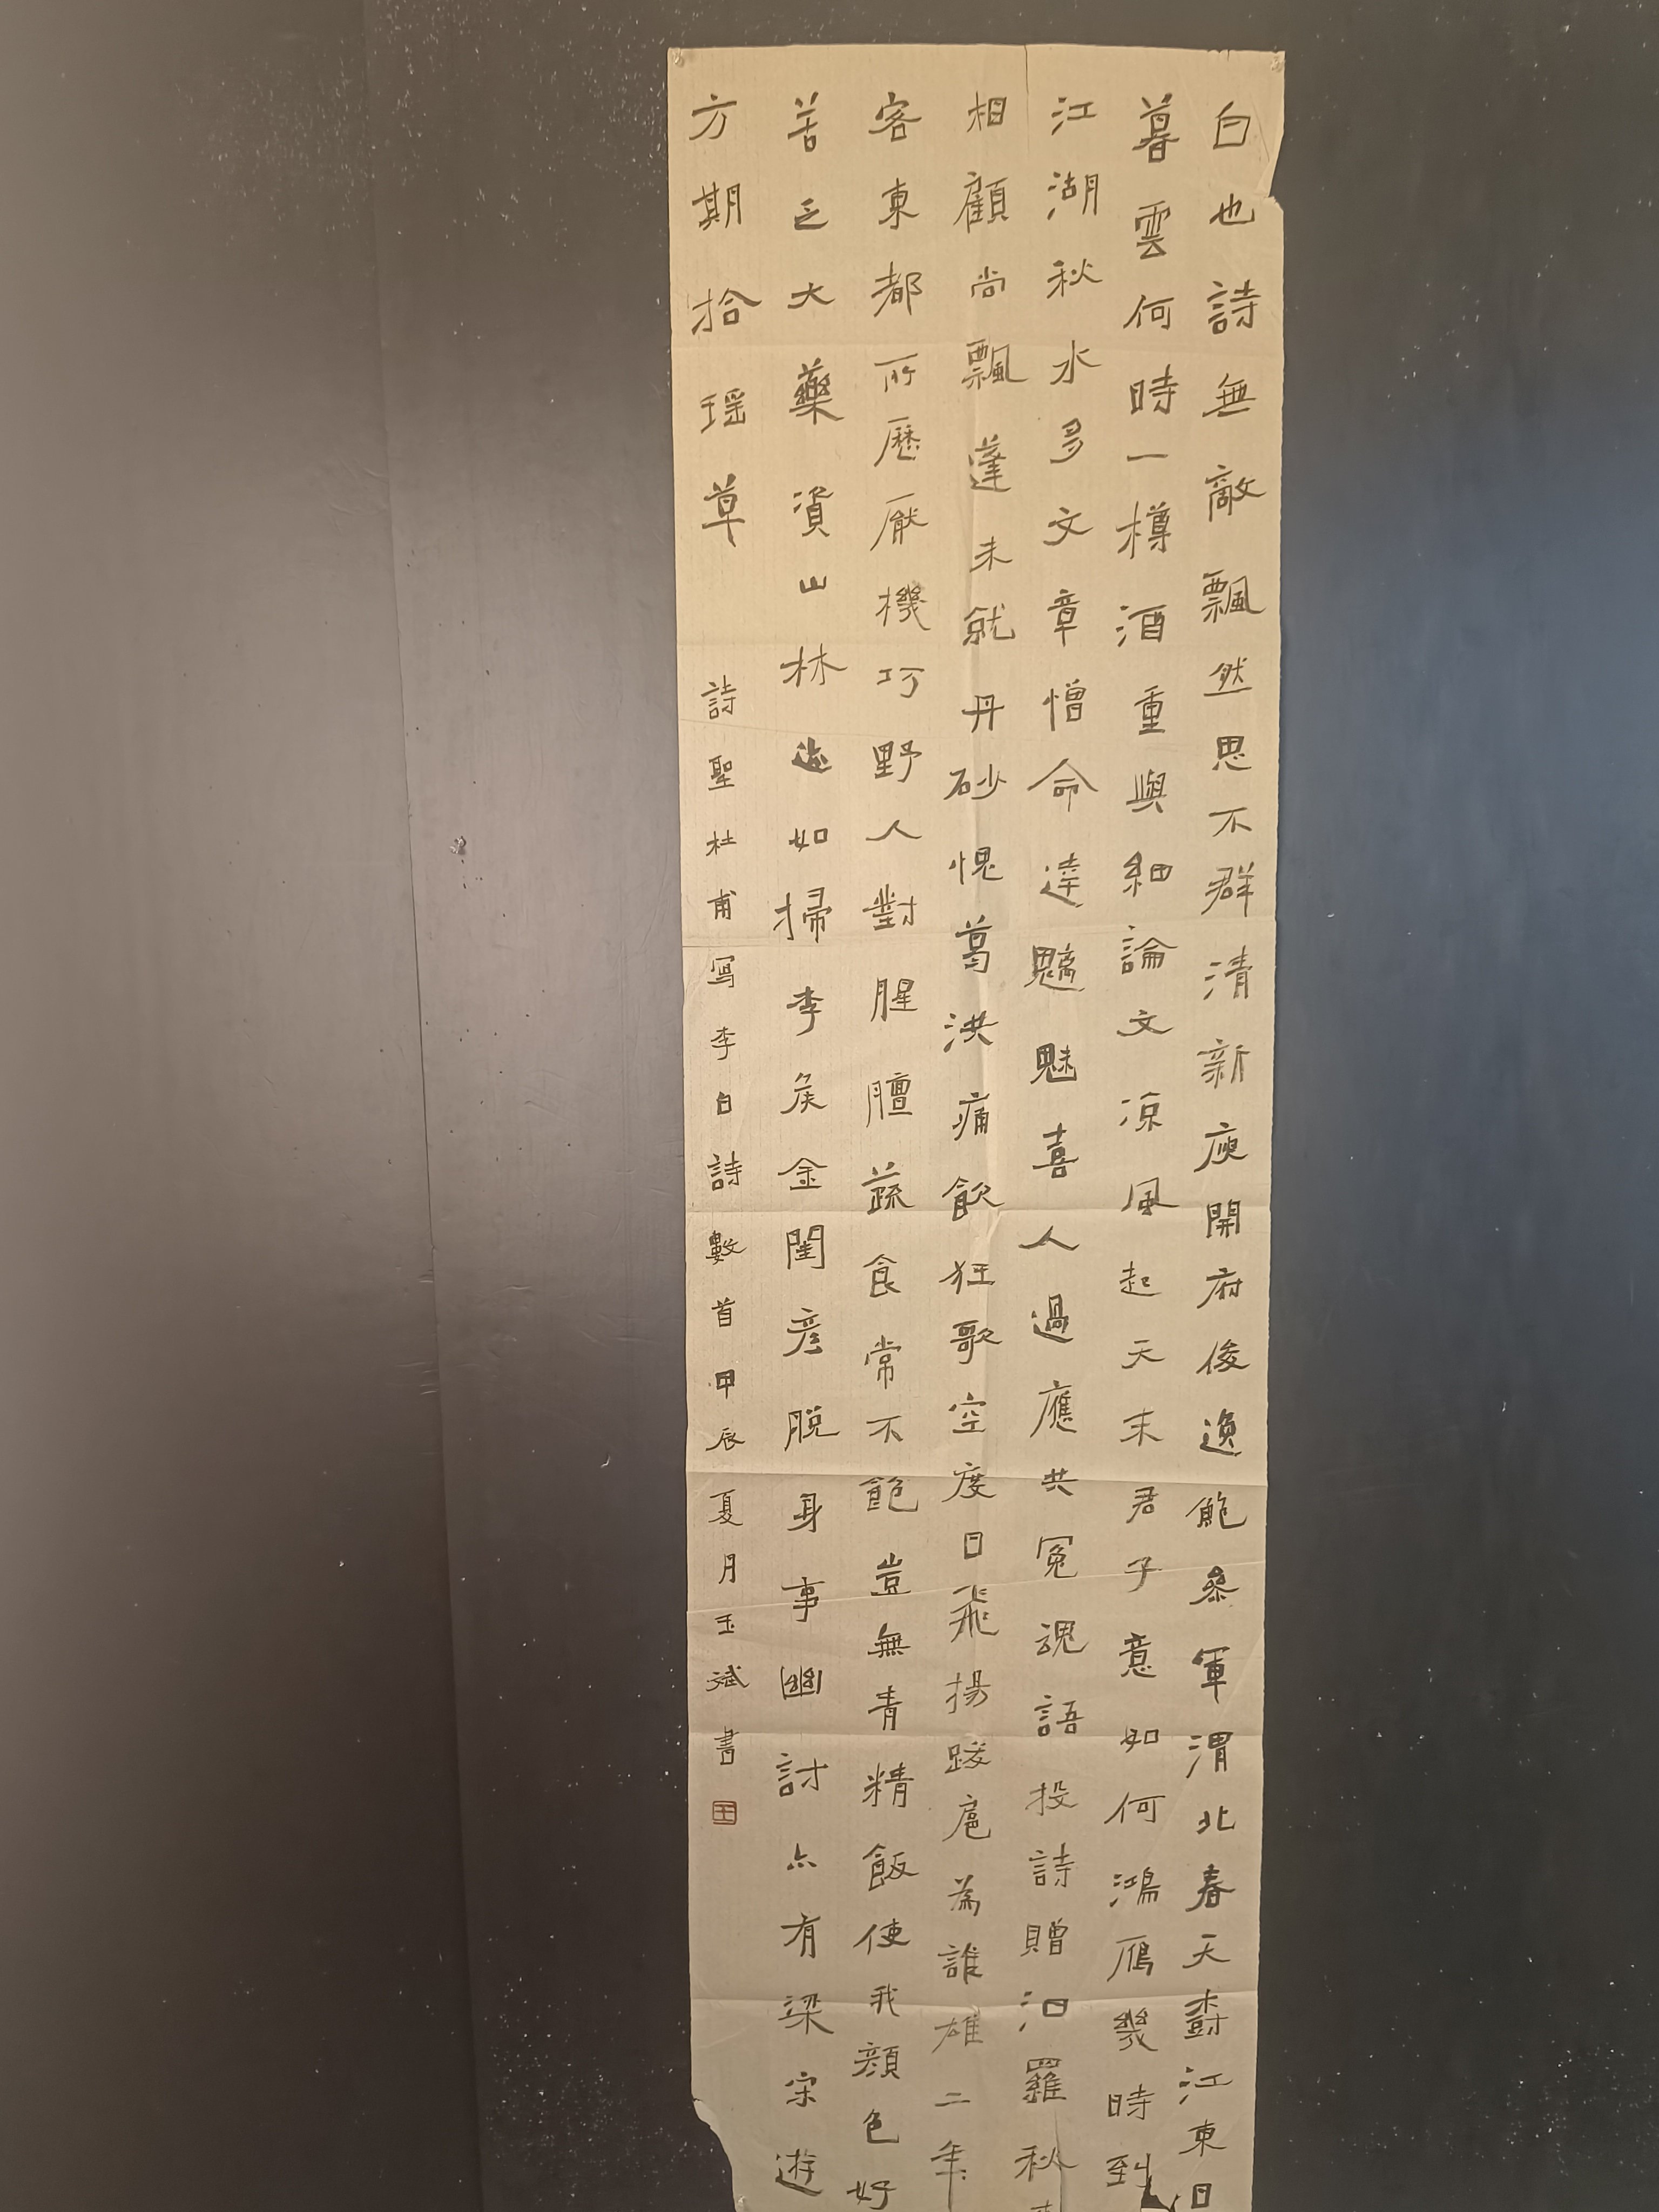 白也詩無敵飄然思不群清新庾開府俊逸鮑參軍渭北春天樹江東日
暮雲何時一樽酒重與細論文涼風起天末君子意如何鴻雁幾時到
江湖秋水多文章憎命達魑魅喜人過應共冤魂語投詩贈汨羅秋
相顧尚飄蓬未就丹砂愧葛洪痛飲狂歌空度日飛揚跋扈為誰雄二年
客東都所歷厭機巧野人對腥膻蔬食常不飽豈無青精飯使我顏色好
苦乏大藥資山林迹如掃李侯金閨彥脫身事幽討亦有梁宋遊
方期拾瑤草
詩聖杜甫寫李白詩數首甲辰夏月玉斌書
王